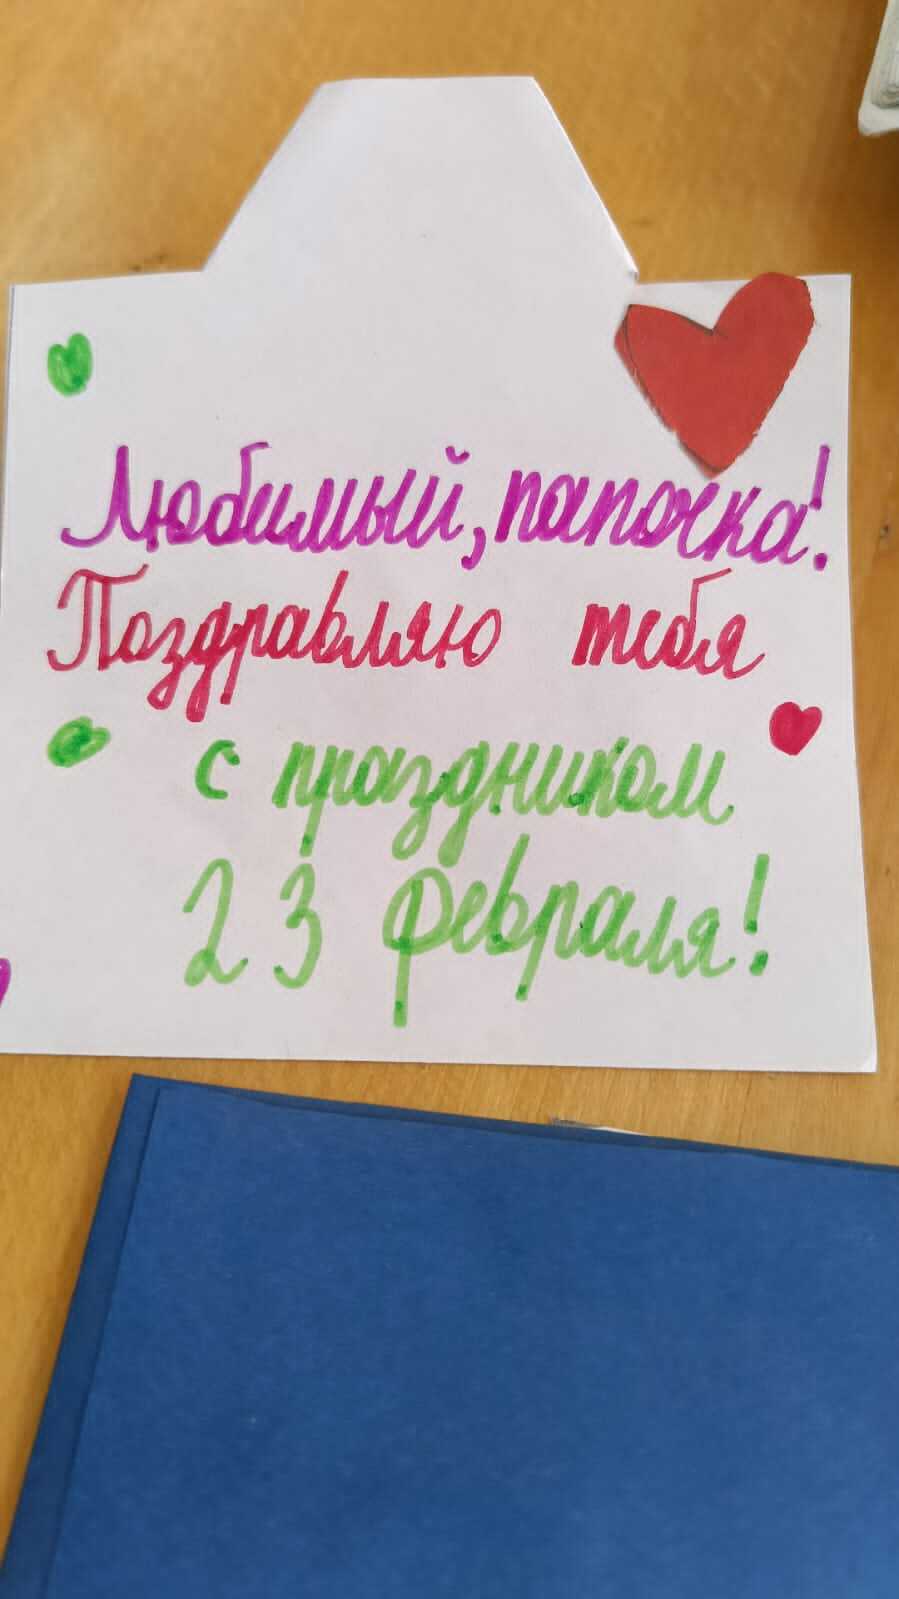 Любимый, папочка!
Поздравляю тебя
с праздником
23 февраля!